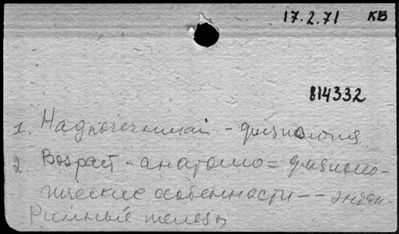 17.2.71 КВ
814332
1. Надпочечники - физиология
2. Возраст - анатомо = физиоло-
гические особенности -- эндок-
ринные железы